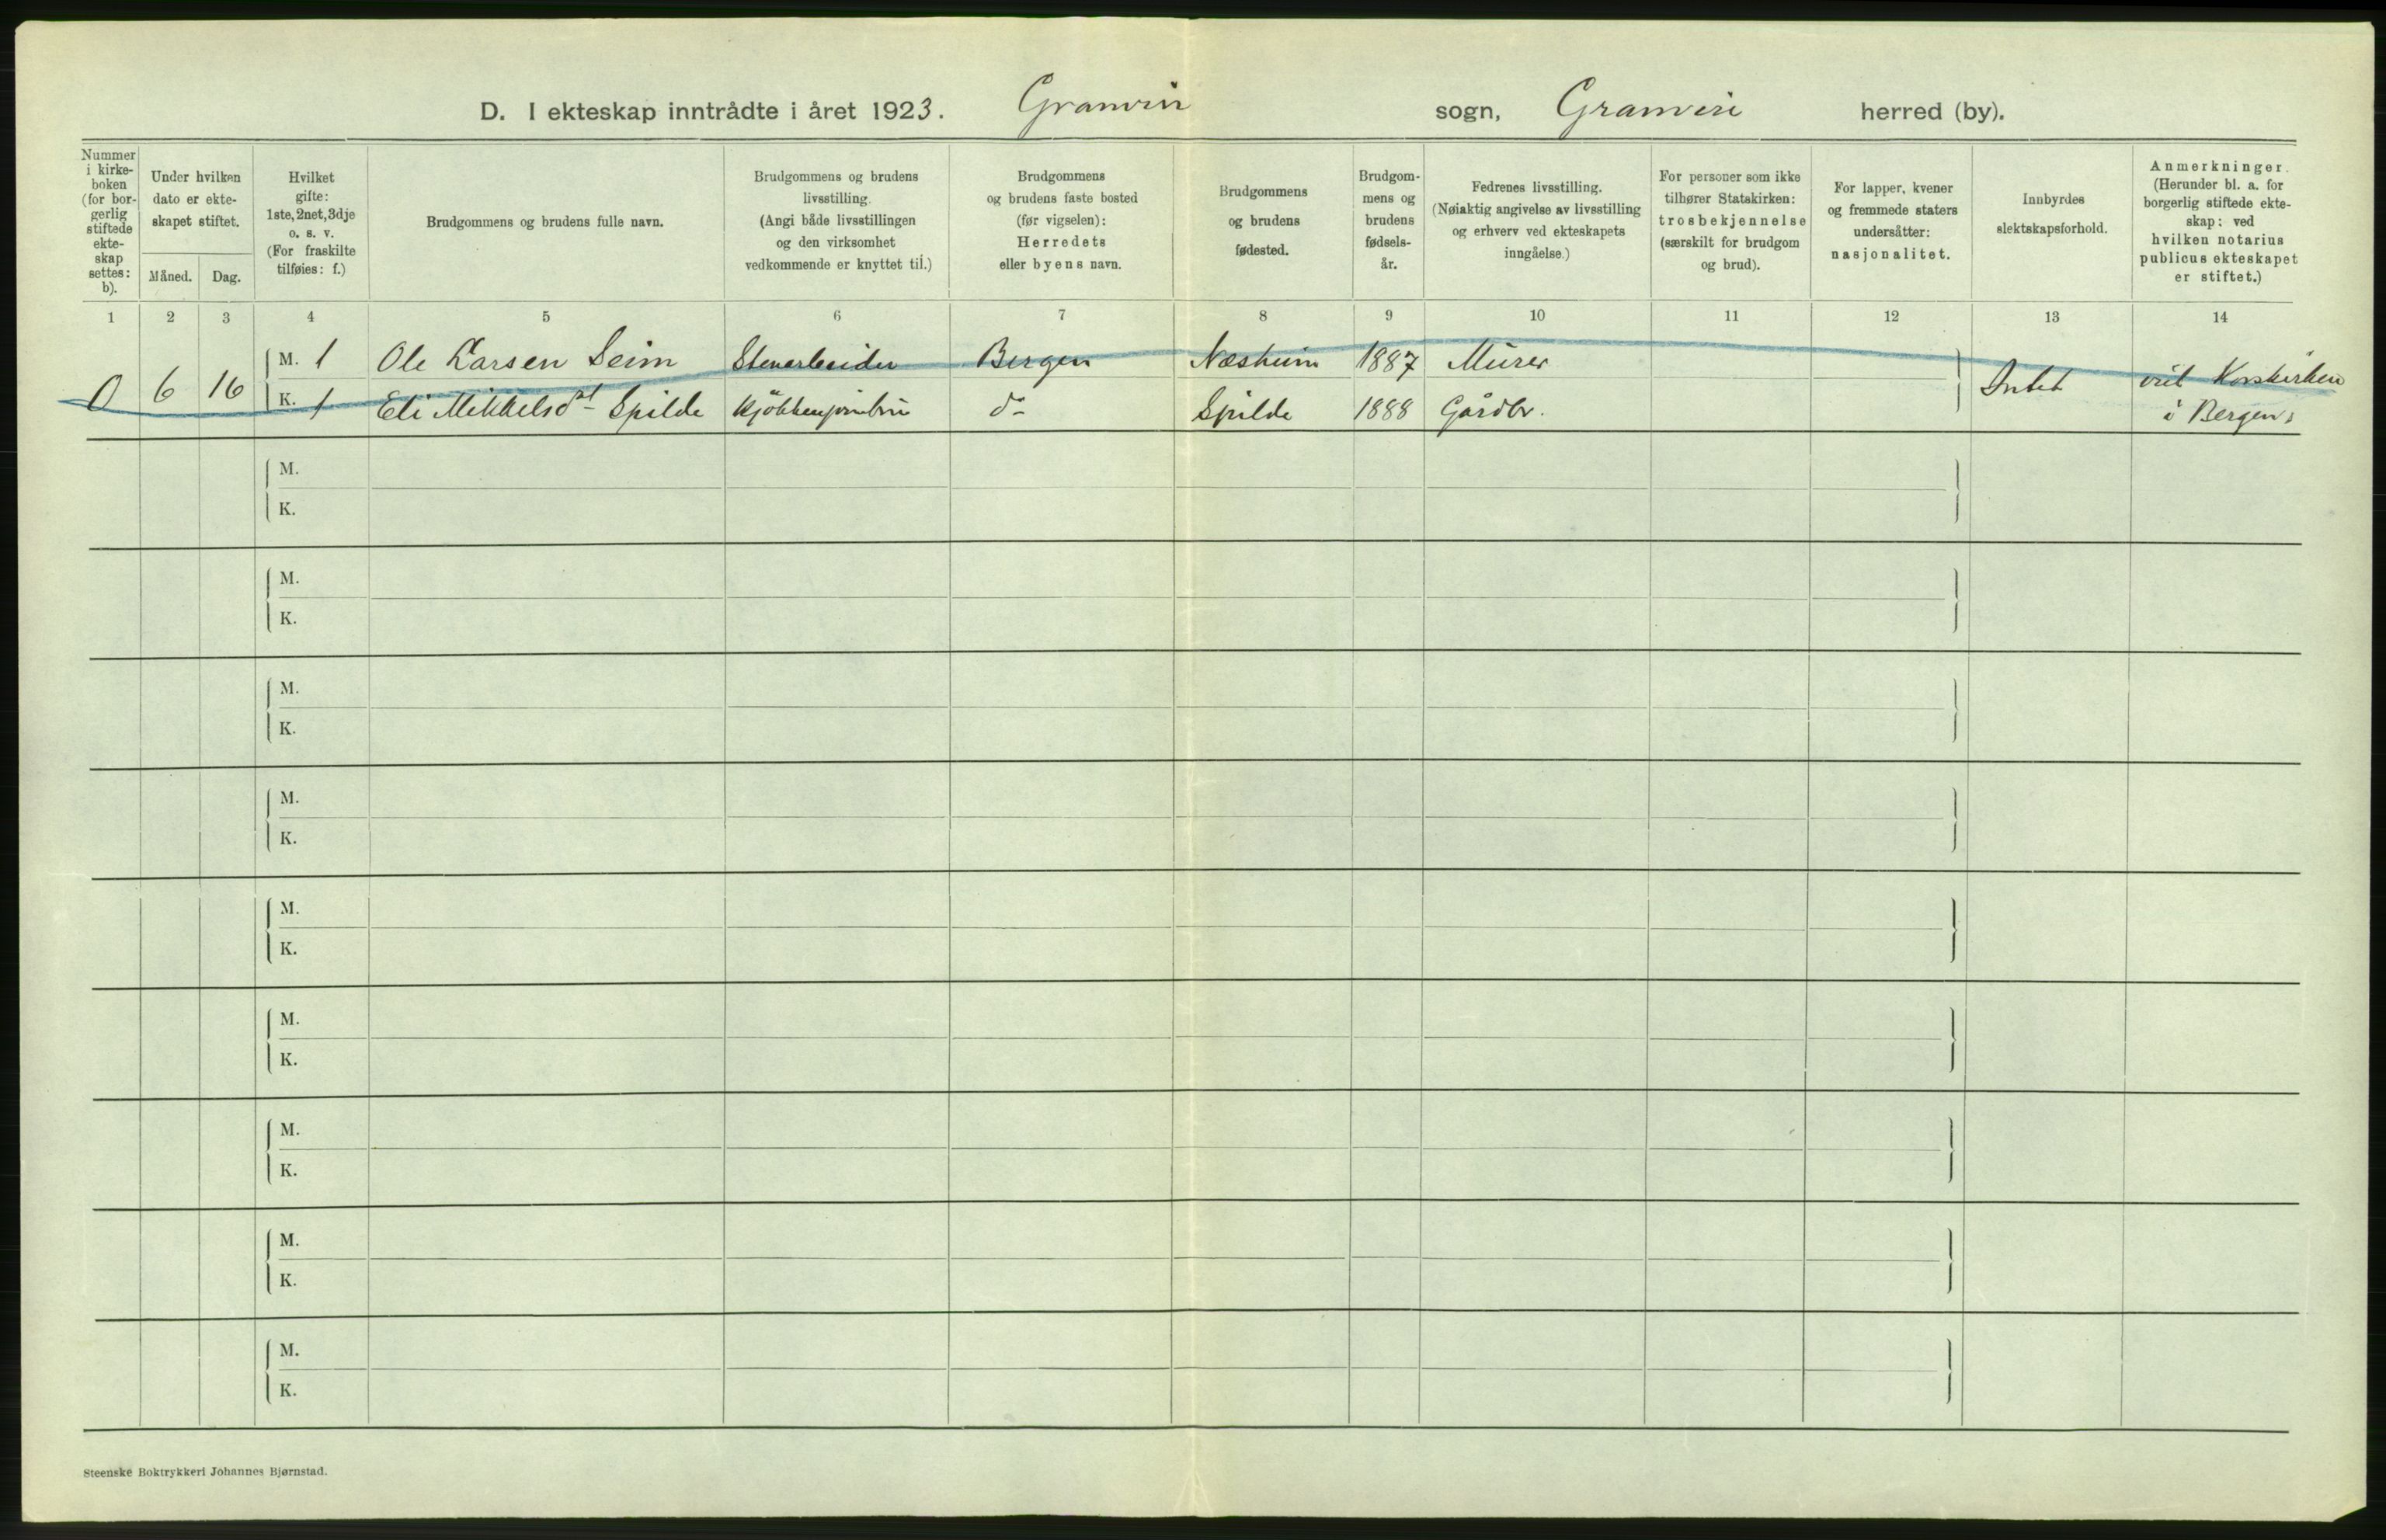 D. I ekteskap inntrådte i året 1923. Granvin sogn, Granvin herred (by).
Nummer i kirke-boken (for bor-gerlig stiftede ekte-skap settes: b).
Under hvilken dato er ekte-skapet stiftet.
Måned. Dag.
Hvilket gifte: 1ste, 2net, 3dje o. s. v. (For fraskilte tilføies: f.)
Brudgommens og brudens fulle navn.
Brudgommens og brudens livsstilling. (Angi både livsstillingen og den virksomhet vedkommende er knyttet til.)
Brudgommens og brudens faste bosted (før vigselen): Herredets eller byens navn.
Brudgommens og brudens fødested.
Brudgom-mens og brudens fødsels-år.
Fedrenes livsstilling. (Nøiaktig angivelse av livsstilling og erhverv ved ekteskapets inngåelse.)
For personer som ikke tilhører Statskirken: trosbekjennelse (særskilt for brudgom og brud).
For lapper, kvener og fremmede staters undersåtter: nasjonalitet.
Innbyrdes slektskapsforhold.
Anmerkninger. (Herunder bl. a. for borgerlig stiftede ekte-skap: ved hvilken notarius publicus ekteskapet er stiftet.)
1 2 3 4 5 6 7 8 9 10 11 12 13 14
0 6 16 M. 1 Ole Larsen Seim Stenarbeider Bergen Næsheim 1887 Murer Intet viet Korskirken
K. 1 Eli Mikkelsdt Spilde do Spilde 1888 Gårdbr. i Bergen.
M.
K.
M.
K.
M.
K.
M.
K.
M.
K.
M.
K.
M.
K.
M.
K.
M.
K.
Steenske Boktrykkeri Johannes Bjørnstad.